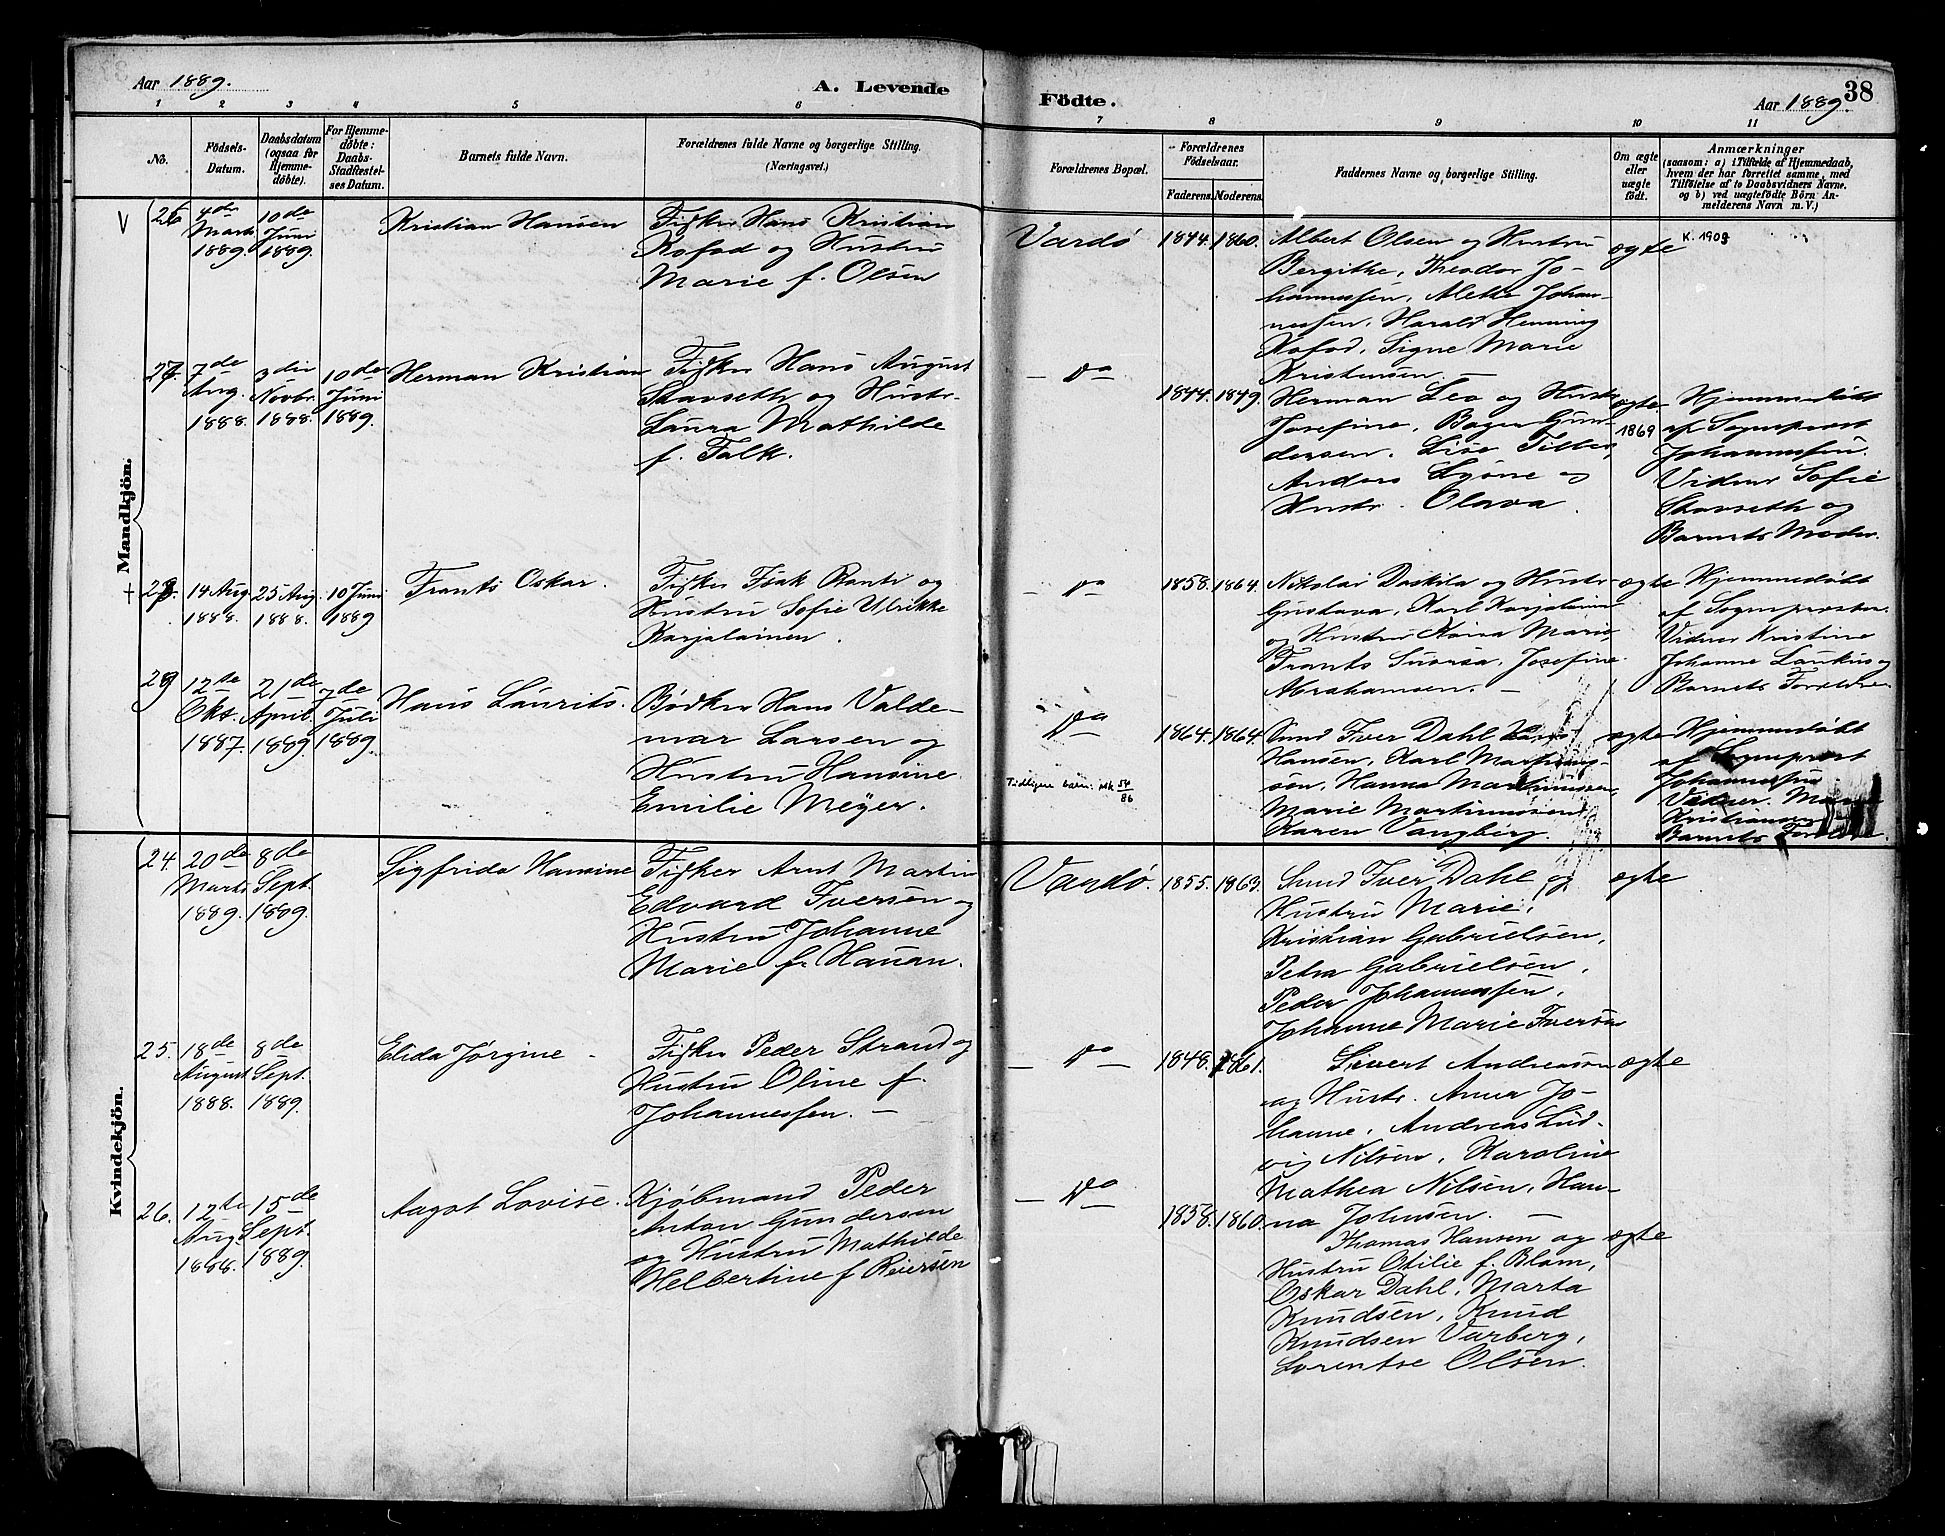 Aar 1889.
A. Levende
Födte.
Aar 1889.
38
1 2 3 4 5 6 7 8 9 10 11
No.
Födsels-
Datum.
Daabsdatum
(ogsaa for
Hjemme-
døbte).
For Hjemme-
døbte:
Daabs-
Stadfæstel-
ses Datum.
Barnets fulde Navn.
Forældrenes fulde Navne og borgerlige Stilling.
(Næringsvei.)
Forældrenes Bopæl.
Forældrenes
Födselsaar.
Faderens. Moderens.
Faddernes Navne og borgerlige Stilling.
Om ægte
eller
uægte
født.
Anmærkninger
(saasom: a) i Tilfælde af Hjemmedaab,
hvem der har forrettet samme, med
Tilføielse af to Daabsvidners Navne,
og b) ved uægtefödte Börn An-
melderens Navn m. V.)
Mandkjön.
V
26
4de
Marts
1889.
10de
Juni
1889.
Kristian Hansen
Fisker Hans Kristian
Kofod og Hustru
Marie f. Olsen
Vardø
1844. 1860.
Albert Olsen og Hustru
Bergithe, Theodor Jo-
hannessen, Alette Johan-
nessen, Harald Henning
Kofod, Signe Marie
Kristensen. —
ægte
K. 1903
27.
7de
Aug.
1888.
3die
Novbr.
1888.
10de
Juni
1889.
Herman Kristian
Fisker Hans August
Stavseth og Hustr.
Laura Mathilde
f. Falk.
— Do —
1844. 1849.
Herman Leo og Hustr.
Josefine, Boger Gun-
dersen, Lise Tiller,
Anders Lyøne og
Hustr. Olava.
ægte
1869
Hjemmedøbt
af Sogneprest
Johannessen.
Vidner Sofie
Stavseth og
Barnets Moder.
+
28.
14 Aug
1888.
25 Aug.
1888.
10 Juni
1889
Frants Oskar.
Fisker Isak Ranti og
Hustru Sofie Ulrikke
Karjalainen.
— Do —
1858. 1864.
Nikolai Daskila og Hustr.
Gustava, Karl Karjalainen
og Hustru Kaisa Marie,
Frants Suorsa, Josefine
Abrahamsen. —
ægte
Hjemmedøbt
af Sognepresten.
Vidner Kristine
Johanne Laukus og
Barnets Forældre.
29
12te
Okt.
1887.
21de
April.
1889.
7de
Juli
1889.
Hans Laurits.
Bødker Hans Valde-
mar Larsen og
Hustru Hansine
Emilie Meyer.
Do
Tidligere barn: Mk 54/86
1864. 1864.
Smed Iver Dahl, Hans
Hansen, Karl Martinus-
sen, Hanna Martinussen,
Marie Martinussen,
Karen Vangberg.
ægte
Hjemmedøbt
af Sogneprest
Johannessen
Vidner.
Kristiansen
Barnets Forældre.
Kvindekjön.
24.
20de
Marts
1889.
8de
Sept.
1889.
Sigfrida Hansine
Fisker Arnt Martin
Edvard Iversen og
Hustru Johanne
Marie f. Hauan.
Vardø.
1855. 1863.
Smed Iver Dahl og
Hustru Marie,
Kristian Gabrielsen,
Petra Gabrielsen,
Peder Johannessen,
Johanne Marie Iversen
ægte
25.
18de
August
1888.
8de
Sept.
1889.
Elida Jørgine —
Fisker Peder Strand og
Hustru Oline f.
Johannessen. —
— Do —
1848. 1861.
Sivert Andreassen
og Hustr. Anna Jo-
hanne, Andreas Lud-
vig Nilsen, Karoline
Mathea Nilsen, Han-
na Johnsen. —
ægte
26.
12te
Aug
1888.
15de
Sept.
1889.
Aagot Lovise.
Kjøbmand Peder
Anton Gundersen
og Hustru Mathilde
Helbertine f Reiersen
— Do —
1858. 1860.
Thomas Hansen og
Hustru Otilie f. Blom,
Oskar Dahl, Marta
Knudsen, Knud
Knudsen Varberg,
Lorentse Olsen.
ægte